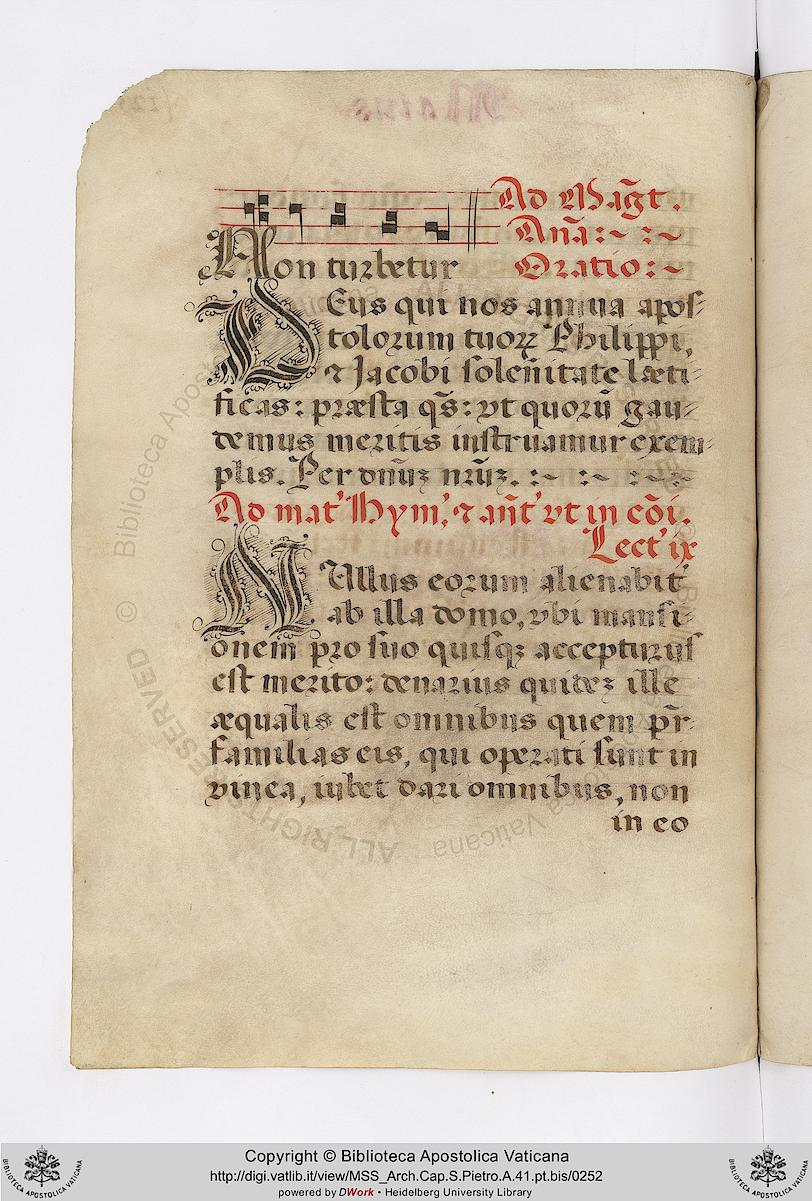 Ad Mag̃t.
Anã:~ :~
Non turbetur Oratio:~
DEus qui nos annua apos-
tolorum tuoꝝ Philippi,
⁊ Jacobi soleñitate læti-
ficas: præsta q̃s: vt quorũ gau-
demus meritis instruamur exem-
plis. Per dnũꝫ nrũꝫ. :~ :~ :~:~
Ad mat' Hym', ⁊ añt' vt in cõi.
Lect' ix
NUllus eorum alienabit'
ab illa domo, vbi mansi-
onem pro suo quisqꝫ accepturus
est merito: denarius quideꝫ ille
æqualis est omnibus quem pr̃-
familias eis, qui operati sunt in
vinea, iubet dari omnibus, non
in eo
ALL RIGHTS RESERVED © Biblioteca Apostolica Vaticana
BIBLIOTECA APOSTOLICA VATICANA
Copyright © Biblioteca Apostolica Vaticana
http://digi.vatlib.it/view/MSS_Arch.Cap.S.Pietro.A.41.pt.bis/0252
powered by DWork • Heidelberg University Library
BIBLIOTECA APOSTOLICA VATICANA